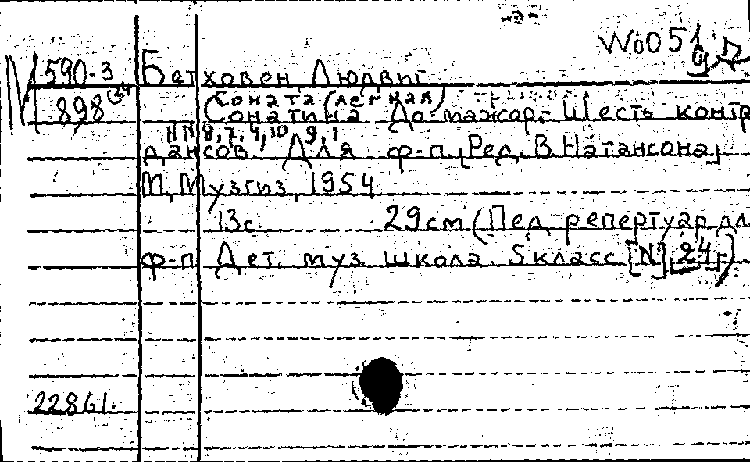 WoO 51
М 590-3 Бетховен, Людвиг
898 Соната (легкая)
Сонатина До-мажор. Шесть контр
NN 8, 7, 4, 10, 9, 1
дансов. Для ф-п. [Ред. В. Натансона]
М, Музгиз, 1954
13с. 29см (Пед. репертуар дл
ф-п Дет. муз. школа. 5 класс [N] 24г)
22861.